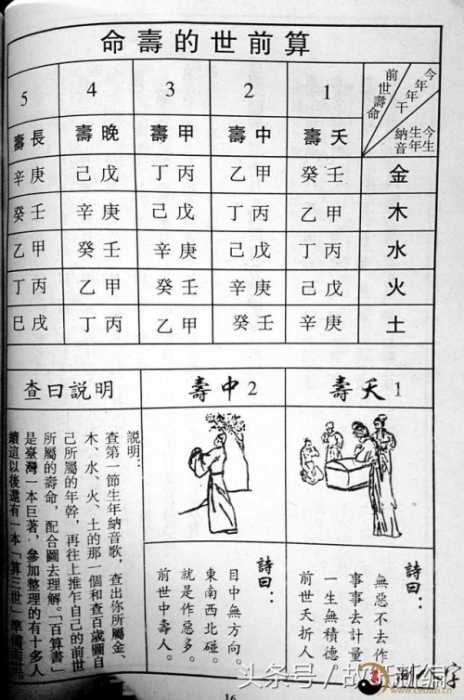 算前世的壽命
前世壽命
今年年干
今生生年納音
1 2 3 4 5
夭壽 中壽 甲壽 晚壽 長壽
金 壬癸 甲乙 丙丁 戊己 庚辛
木 甲乙 丙丁 戊己 庚辛 壬癸
水 丙丁 戊己 庚辛 壬癸 甲乙
火 戊己 庚辛 壬癸 甲乙 丙丁
土 庚辛 壬癸 甲乙 丙丁 戌巳
1夭壽
詩曰：
無惡不去作
事事去計量
一生無積德
前世夭折人
2中壽
詩曰：
目中無方向。
東南西北碰。
就是作惡多。
前世中壽人。
查曰説明
說明：
查第一節生年納音歌，查出你所屬金、
木、水、火、土的那一個和查百歲圖自
己所屬的年幹，再往上推乍自己的前世
所屬的壽命，配合圖去理解。「百算書」
是臺灣一本巨著，參加整理的有十多人
續這以後還有一本「算三世」準備
16
头条号